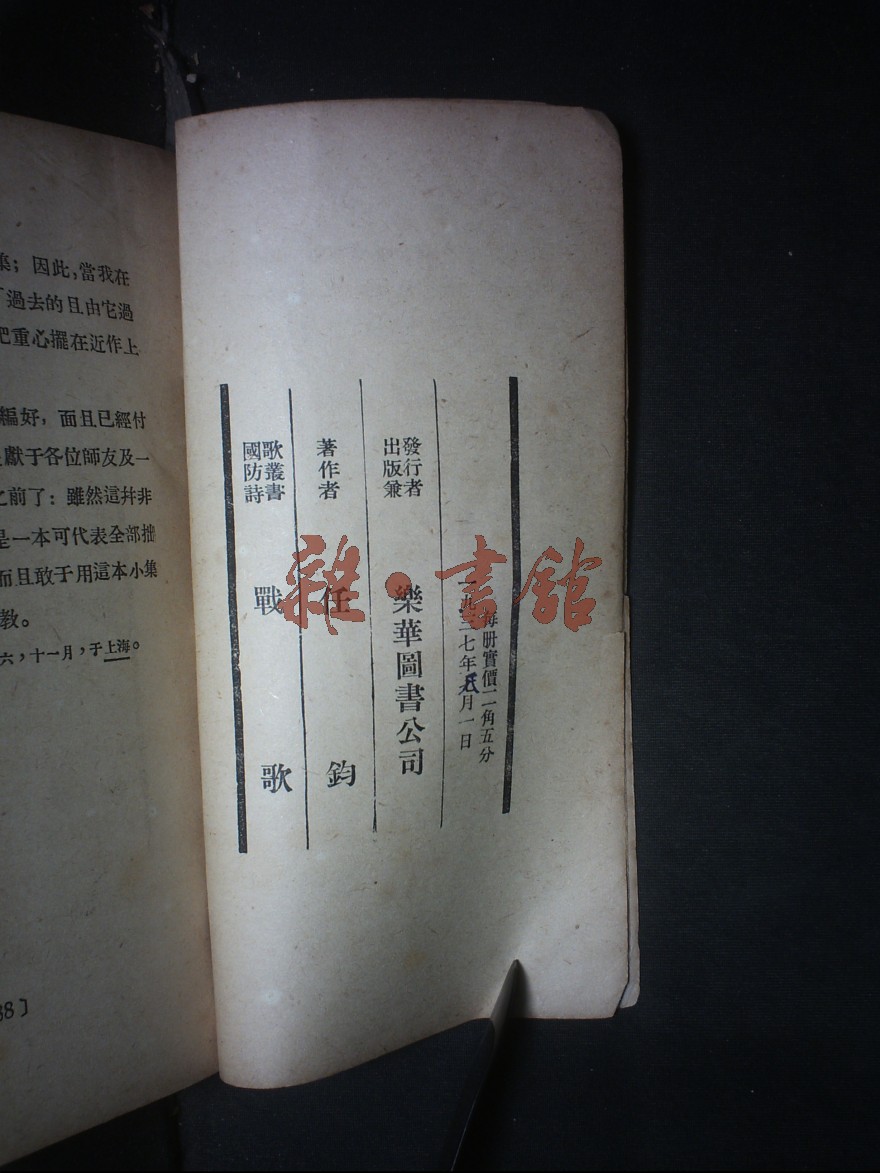 集；因此，當我在
「過去的且由它過
把重心擺在近作上
編好，而且已經付
獻于各位師友及一
之前了：雖然這幷非
是一本可代表全部拙
而且敢于用這本小集
教。
六，十一月，于上海。
38〕
每册實價二角五分
一九三七年五月一日
發行者
出版兼
樂華圖書公司
著作者
任鈞
國防詩
歌叢書
戰歌
雜·書館